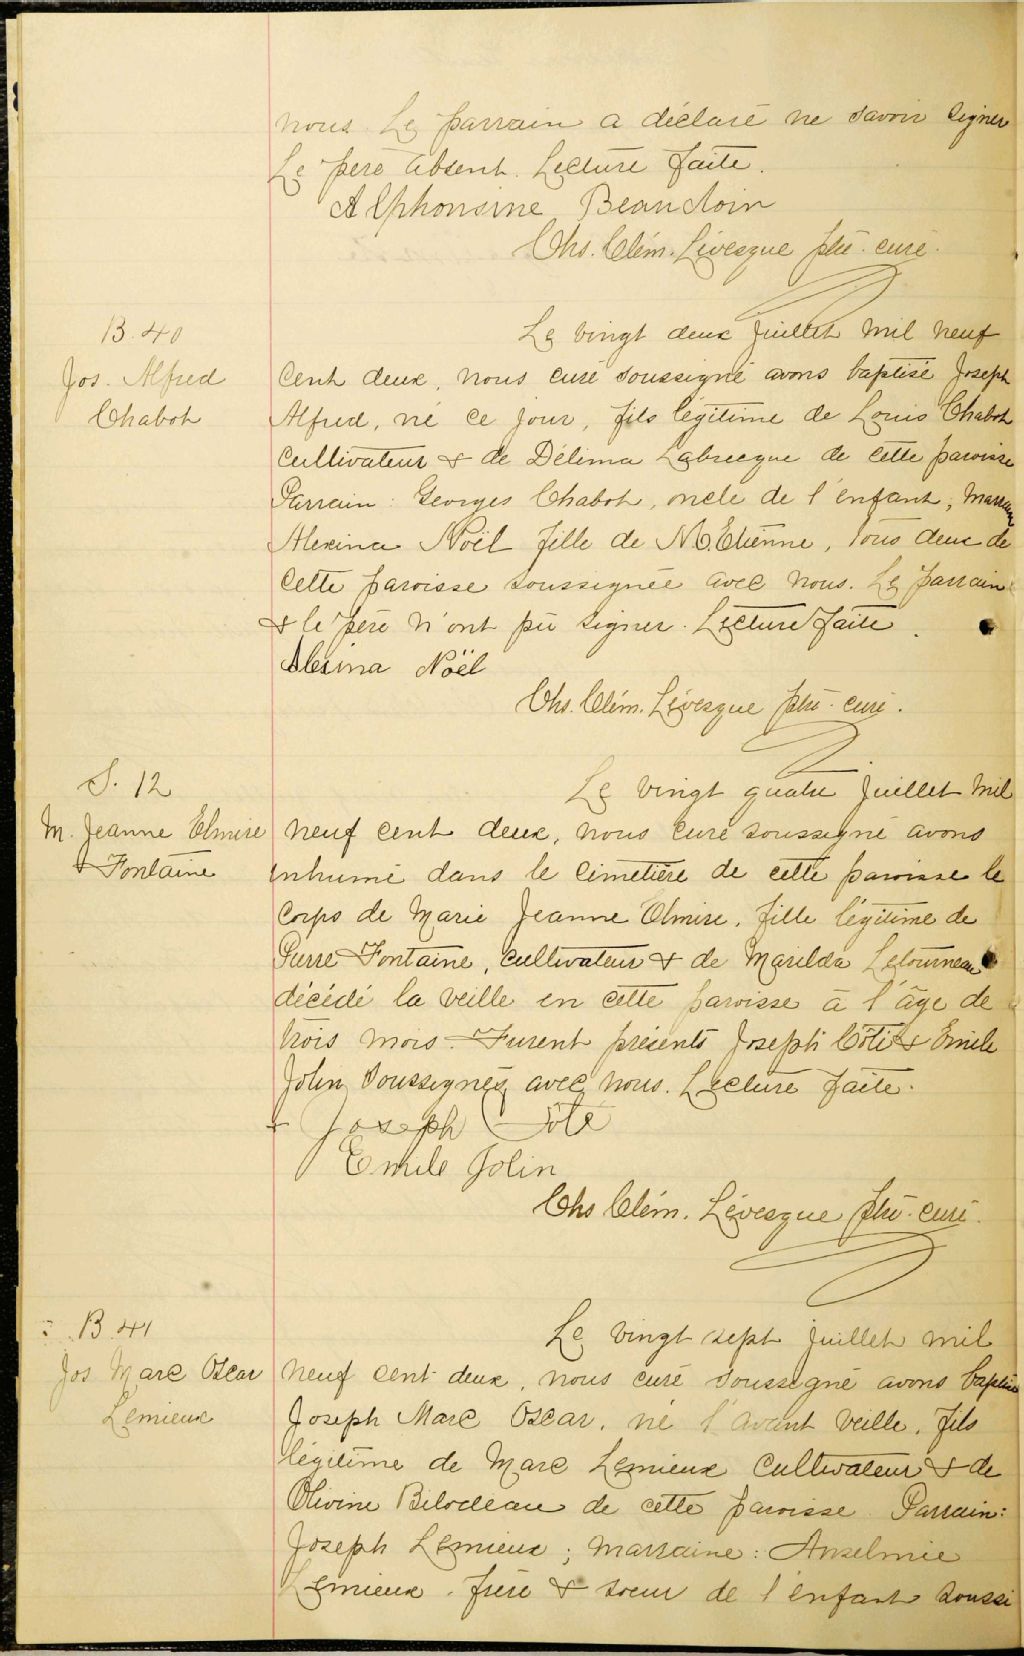 nous. Le parrain a déclaré ne savoir signer
Le père absent. Lecture faite.
Alphonsine Beaudoin
Chs. Clém. Lévesque ptre. curé.
B. 40
Jos. Alfred
Chabot
Le vingt deux juillet mil neuf
cent deux, nous curé soussigné avons baptisé Joseph
Alfred, né ce jour, fils légitime de Louis Chabot
cultivateur & de Délima Labrecque de cette paroisse
Parrain: Georges Chabot, oncle de l'enfant, Marraine
Alexina Noël fille de M. Etienne, tous deux de
cette paroisse soussignée avec nous. Le parrain
& le père n'ont pu signer. Lecture faite.
Alexina Noël
Chs. Clém. Lévesque ptre. curé.
S. 12
M. Jeanne Elmire
Fontaine
Le vingt quatre juillet mil
neuf cent deux, nous curé soussigné avons
inhumé dans le cimetière de cette paroisse le
corps de Marie Jeanne Elmire, fille légitime de
Pierre Fontaine, cultivateur & de Marilda Letourneau
décédé la veille en cette paroisse à l'âge de
trois mois. Furent présents Joseph Côté & Emile
Jolin, soussignés avec nous. Lecture faite.
+ Joseph Côté
Emile Jolin
Chs Clém. Lévesque ptre. curé.
B. 41
Jos Marc Oscar
Lemieux
Le vingt sept juillet mil
neuf cent deux, nous curé soussigné avons baptisé
Joseph Marc Oscar, né l'avant veille, fils
légitime de Marc Lemieux cultivateur & de
Olivine Bilodeau de cette paroisse. Parrain:
Joseph Lemieux; marraine: Anselmie
Lemieux. frère & soeur de l'enfant soussi